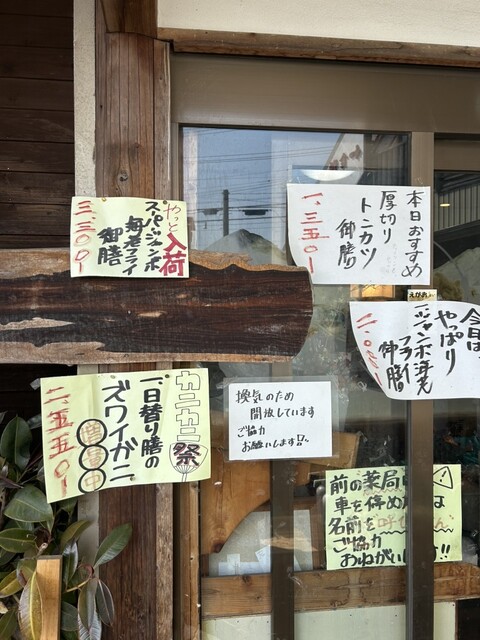 やっと入荷
スーパージャンボ
海老フライ
御膳
三、三〇〇ー
本日おすすめ
厚切り
トンカツ
御膳
一、三五〇ー
今日は、
やっぱり
ジャンボ海老
フライ
御膳
カニカニ祭
一日替り膳の
ズワイガニ
増量中
二、五五〇ー
換気のため
開放しています
ご協力
お願いします!!
前の薬局
車を停め
名前を呼
ご協力
おねがい